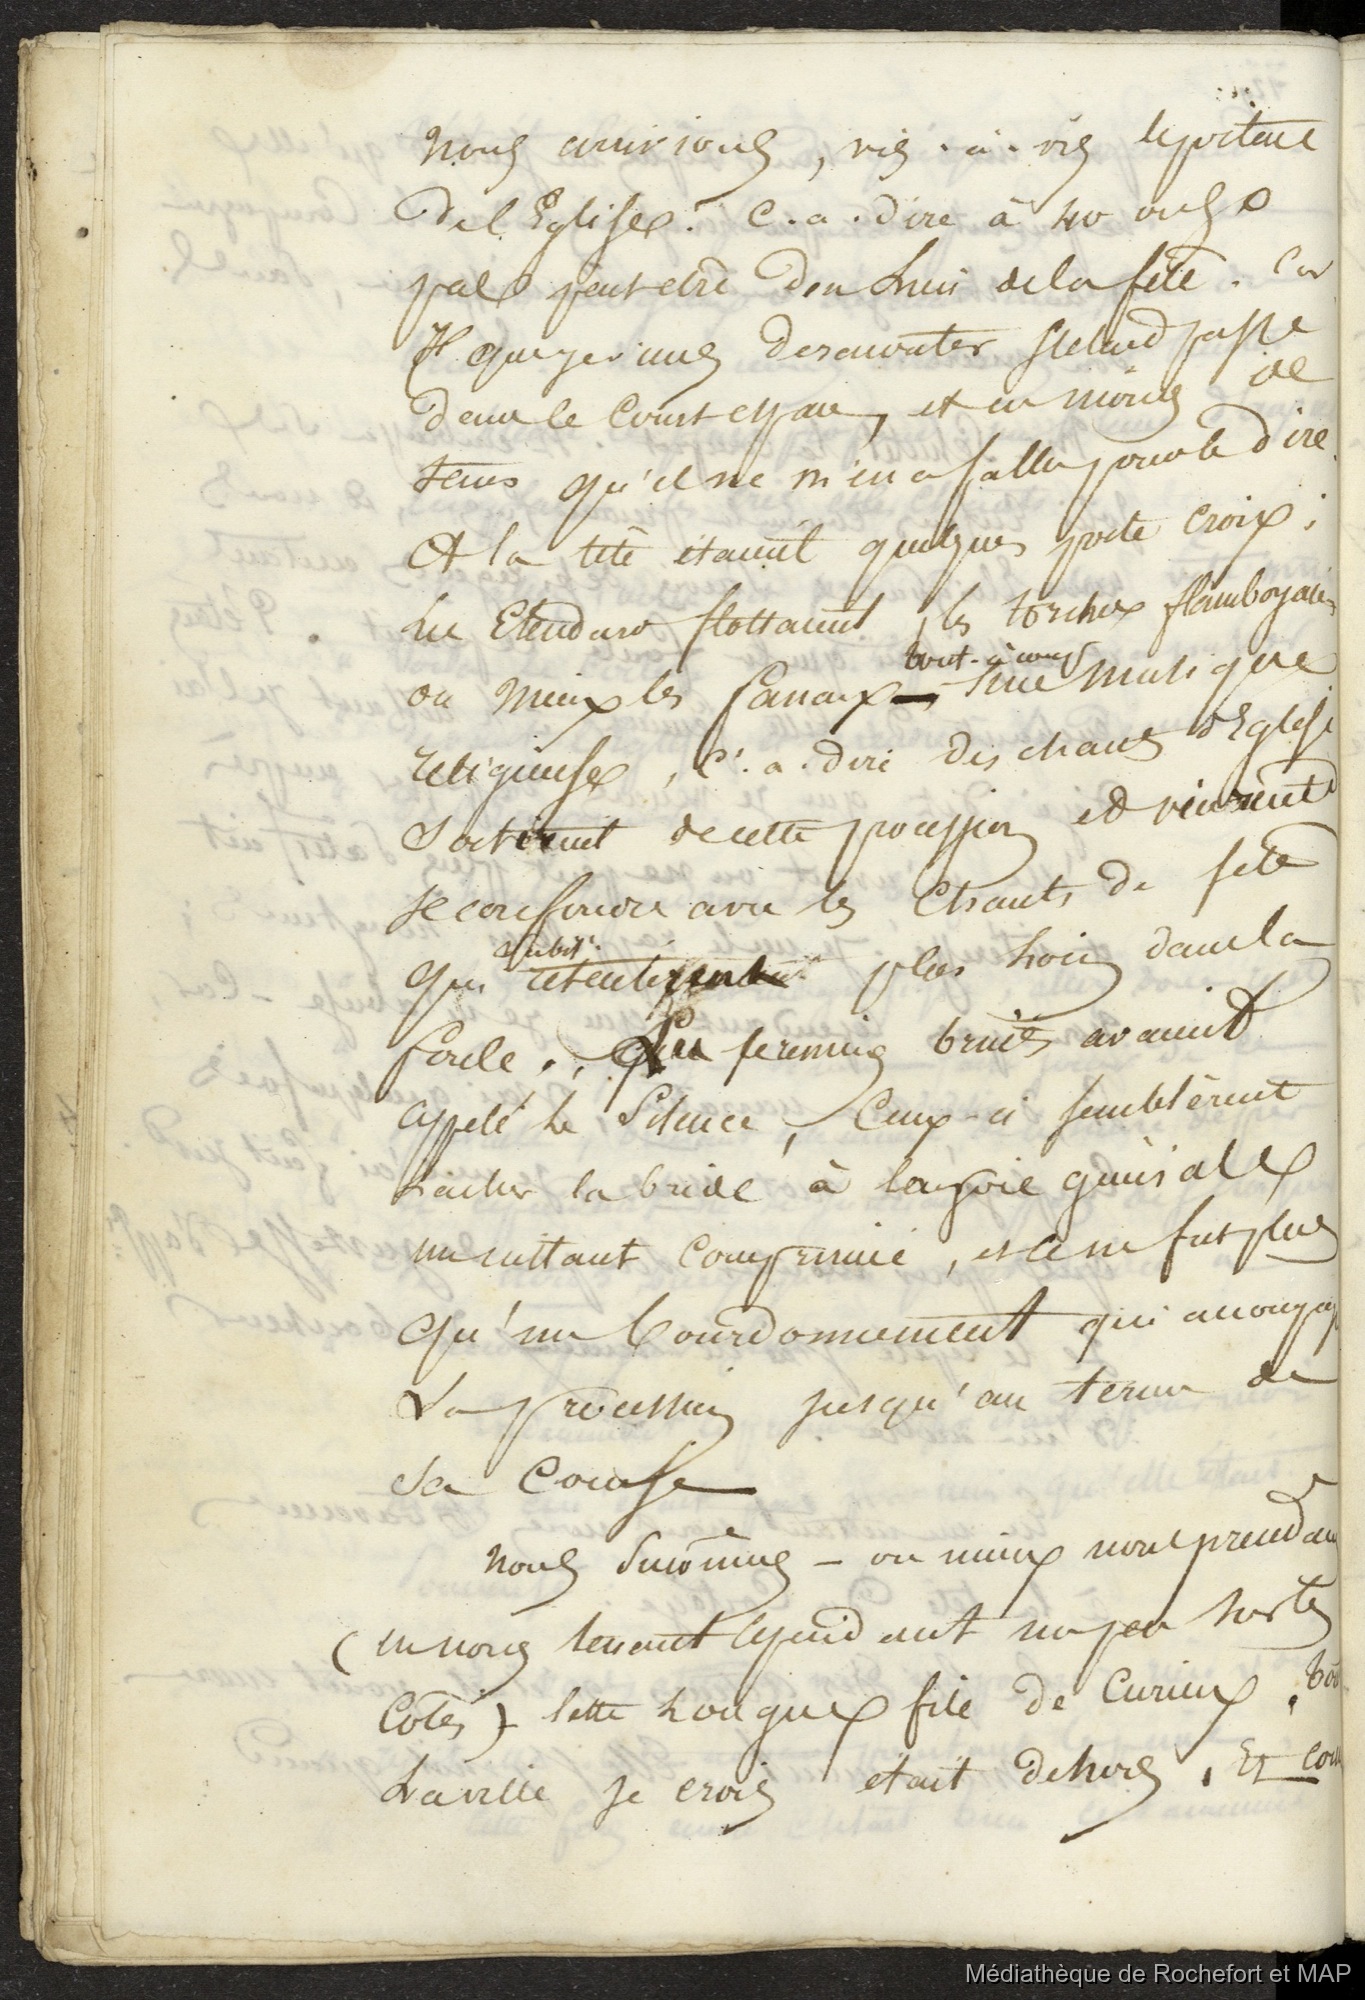 nous arrivions, vis-à-vis le portail
de l'Eglise. C.a.dire à 40 ou 50
pas peut etre du lieu de la fête. Car
que je viens de raconter s'etait passé
dans le court espace, et en moins de
tems qu'il ne m'en a fallu pour le dire.
A la tête étaient quelques porte croix;
les Etendars flottaient, les torches flamboyaien
ou mieux les fanaux tout-à-coup une musique
religieuse, c'.a.dire des chants d'Eglise
sortirent de cette procession et vinrent
se confondre avec les Chants de fête
qui plus loin dans la
foule. Les premiers bruits avaient
appelé le Silence, Ceux-ci semblèrent
lacher la bride à la joie générale
un instant comprimée, et ce ne fut plus
qu'un bourdonnement qui accompag
La procession jusqu'au terme de
sa Course
nous suivimes – ou mieux nous
(en nous tenant cependant un peu sur les
Cotés) cette longue file de Curieux,
La ville je crois etait dehors. Et
Médiathèque de Rochefort et MAP